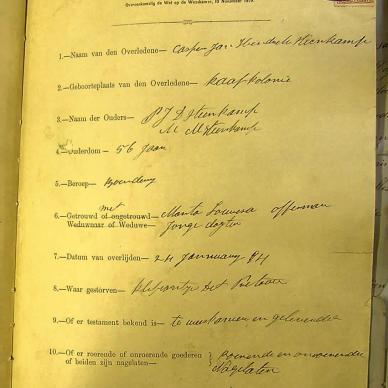 Overeenkomstig de Wet op de Weeskamer, 12 November 1870.
1.—Naam van den Overledene— Casper Jan Hendrik Steenkamp
2.—Geboorteplaats van den Overledene— Kaapkolonie
3.—Naam der Ouders— P J D Steenkamp
M M Steenkamp
4.—Ouderdom— 56 Jaar
5.—Beroep— Boerdery
6.—Getrouwd of ongetrouwd— met Offerman
Weduwnaar of Weduwe— Jonge dogter
7.—Datum van overlijden— 24 January 84
8.—Waar gestorven— Dist
9.—Of er testament bekend is— en gelevende
10.—Of er roerende of onroerende goederen } roerende en onroerende
of beiden zijn nagelaten— Nagelaten